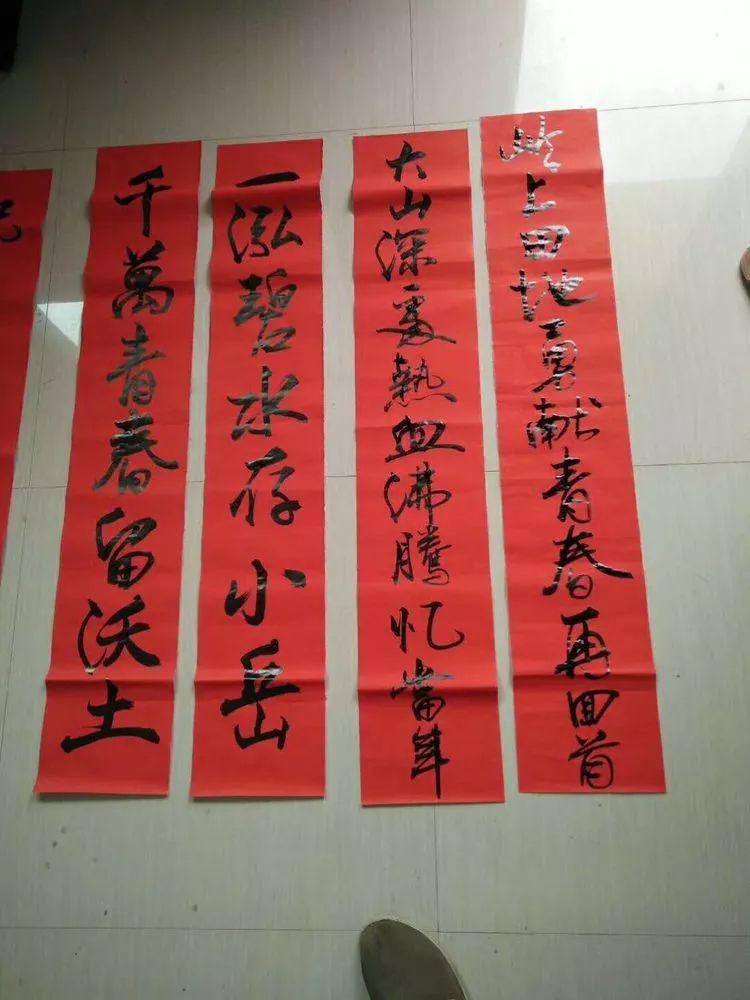 岭上田地勇献青春再回首
大山深處熱血沸騰忆當年
一泓碧水存小岳
千萬青春留沃土